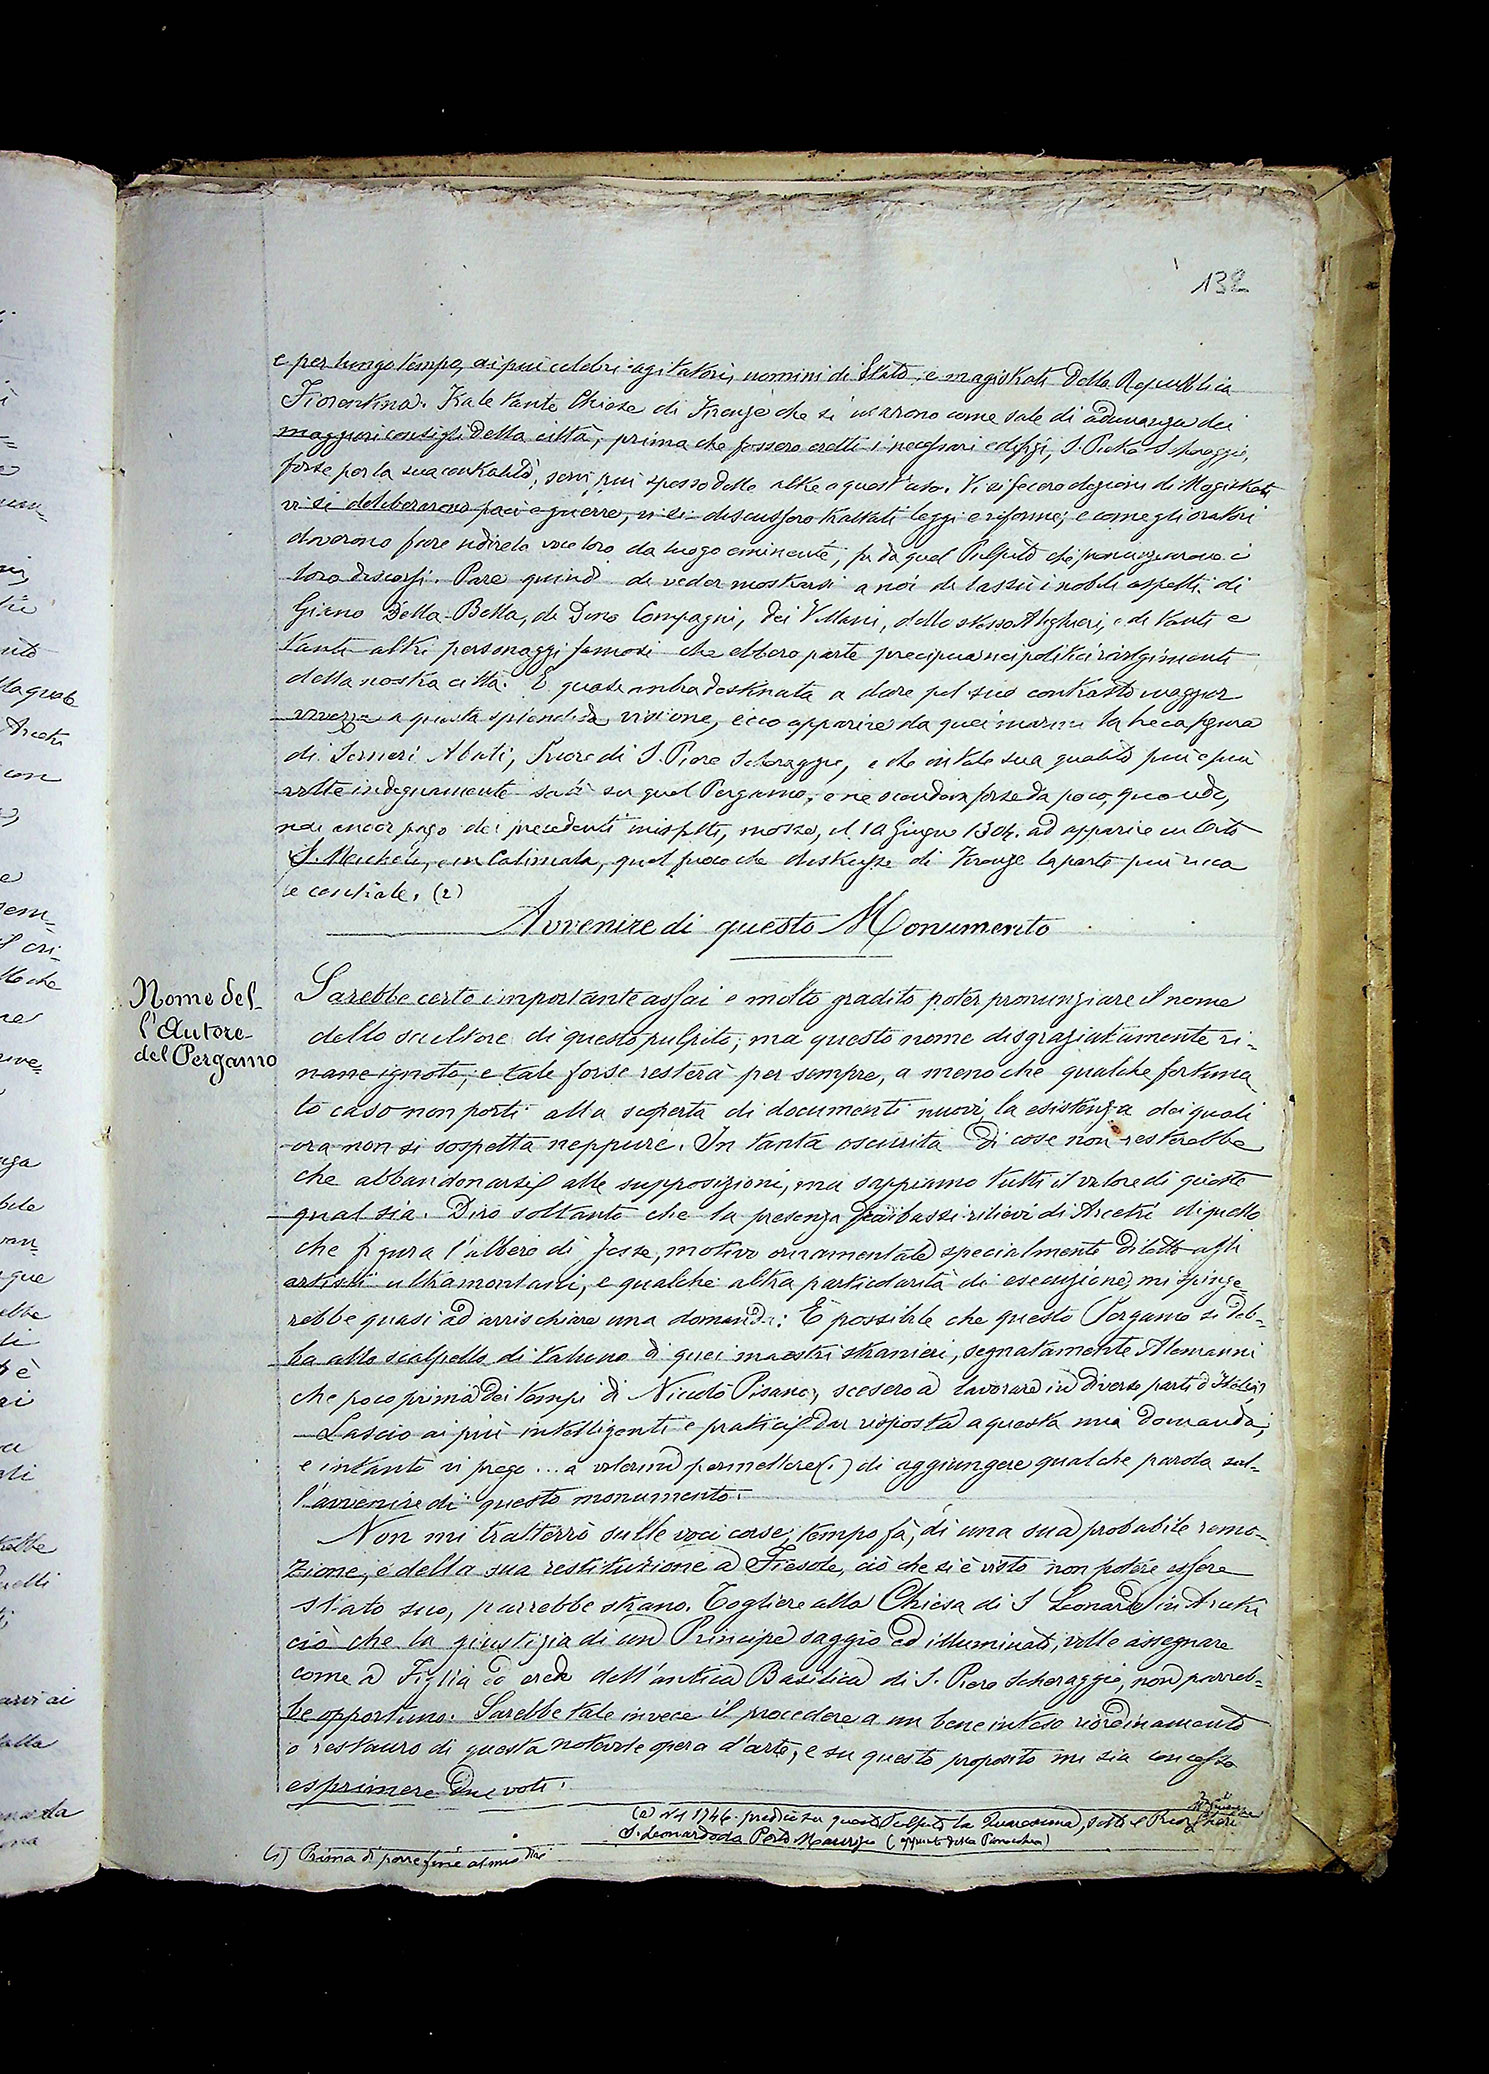 132
e per lungo tempo, ai più celebri agitatori, uomini di Stato, e magistrati della Repubblica
Fiorentina. Tra le tante Chiese di Firenze che si usarono come sale di adunanza dei
maggiori consigli della città, prima che fossero eretti i necessari edifizi, S. Pietro Scheraggio,
forse per la sua centralità, servì più spesso delle altre a quest'uso. Vi si fecero elezioni di Magistrati
vi si deliberarono paci e guerre, vi si discussero trattati leggi e riforme; e come gli oratori
doverono fare udire la voce loro da luogo eminente, fu da quel Pulpito che pronunziarono i
loro discorsi. Pare quindi di veder mostrarsi a noi di lassù i nobili aspetti di
Giano Della-Bella, di Dino Compagni, dei Villani, dello stesso Alighieri, e di tanti e
tanti altri personaggi famosi che ebbero parte precipua nei politici rivolgimenti
della nostra città. E quasi ombra destinata a dare pel suo contrasto maggior
vivezza a questa splendida visione, ecco apparire da quei marmi la bieca figura
di Ser Neri Abati, Priore di S. Piero Scheraggio, e che in tale sua qualità più e più
volte indegnamente salì su quel Pergamo, e ne scendeva forse da poco, quando,
non ancor pago dei precedenti misfatti, mosse, il 10 Giugno 1304. ad appiccare in Orto
S. Michele, e in Calimala, quel fuoco che distrusse di Firenze la parte più ricca
e centrale. (2)
Avvenire di questo Monumento
Nome del-
l'Autore
del Pergamo
Sarebbe certo importante assai e molto gradito poter pronunziare il nome
dello scultore di questo pulpito; ma questo nome disgraziatamente ri-
mane ignoto, e tale forse resterà per sempre, a meno che qualche fortuna
to caso non porti alla scoperta di documenti nuovi, la esistenza dei quali
ora non si sospetta neppure. In tanta oscurità di cose non resterebbe
che abbandonarsi alle supposizioni, ma sappiamo tutti il valore di queste
qual sia. Dirò soltanto che la presenza fra i bassi rilievi di Arcetri di quello
che figura l'albero di Jesse, motivo ornamentale specialmente diletto agli
artisti ultramontani, e qualche altra particolarità di esecuzione, mi spinge-
rebbe quasi ad arrischiare una domanda: È possibile che questo Pergamo si deb-
ba allo scalpello di taluno di quei maestri stranieri, segnatamente Alemanni
che poco prima dei tempi di Niccolò Pisano, scesero a lavorare in diverse parti d'Italia?
Lascio ai più intelligenti e pratici dar risposta a questa mia domanda;
e intanto vi prego ... a volermi permettere (1) di aggiungere qualche parola sul-
l'avvenire di questo monumento.
Non mi tratterrò sulle voci corse, tempo fà, di una sua probabile remo-
zione, e della sua restituzione a Fiesole, ciò che si è visto non potere essere
stato suo, parrebbe strano. Togliere alla Chiesa di S Leonardo in Arcetri
ciò che la giustizia di un Principe saggio ed illuminato, volle assegnare
come a Figlia ed erede dell'antica Basilica di S. Piero Scheraggio, non parreb-
be opportuno. Sarebbe tale invece il procedere a un bene inteso riordinamento
o restauro di questa notevole opera d'arte, e su questo proposito mi sia concesso
esprimere due voti.
(2) Nel 1746. predicò su questo Pulpito la Quaresima, sotto il Prior
S. Leonardo da Porto Maurizio (appunti della Parrocchia)
(1) Prima di porre fine al mio dire